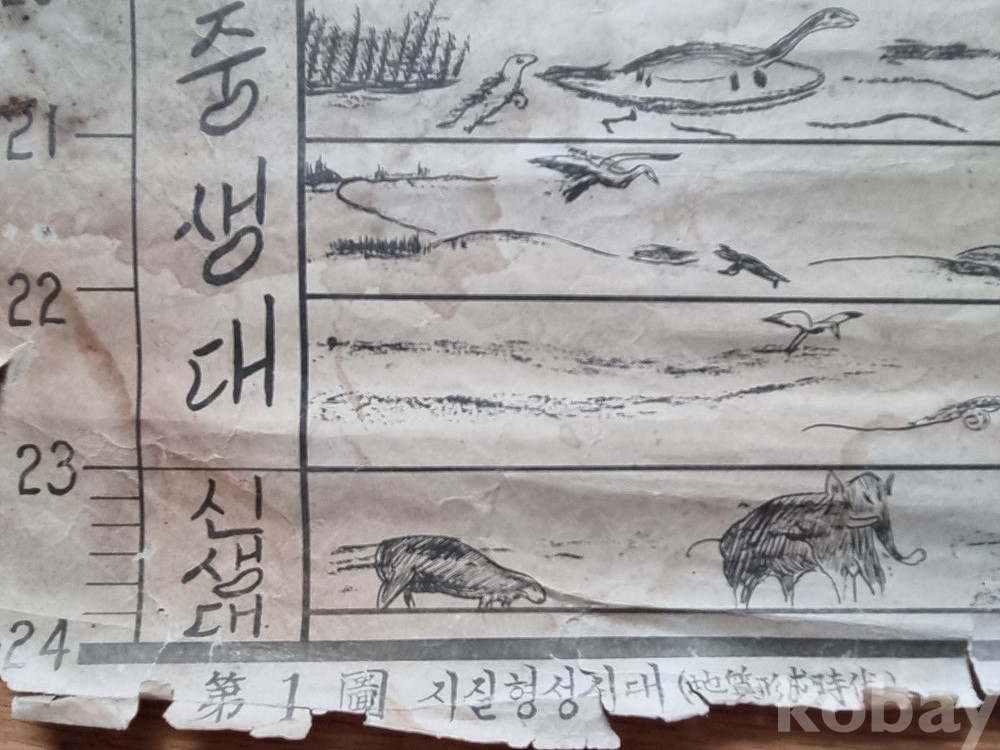 중생대
21
22
23
신생대
24
第 1 圖 지질형성시대 (地質形成時代)
kobay